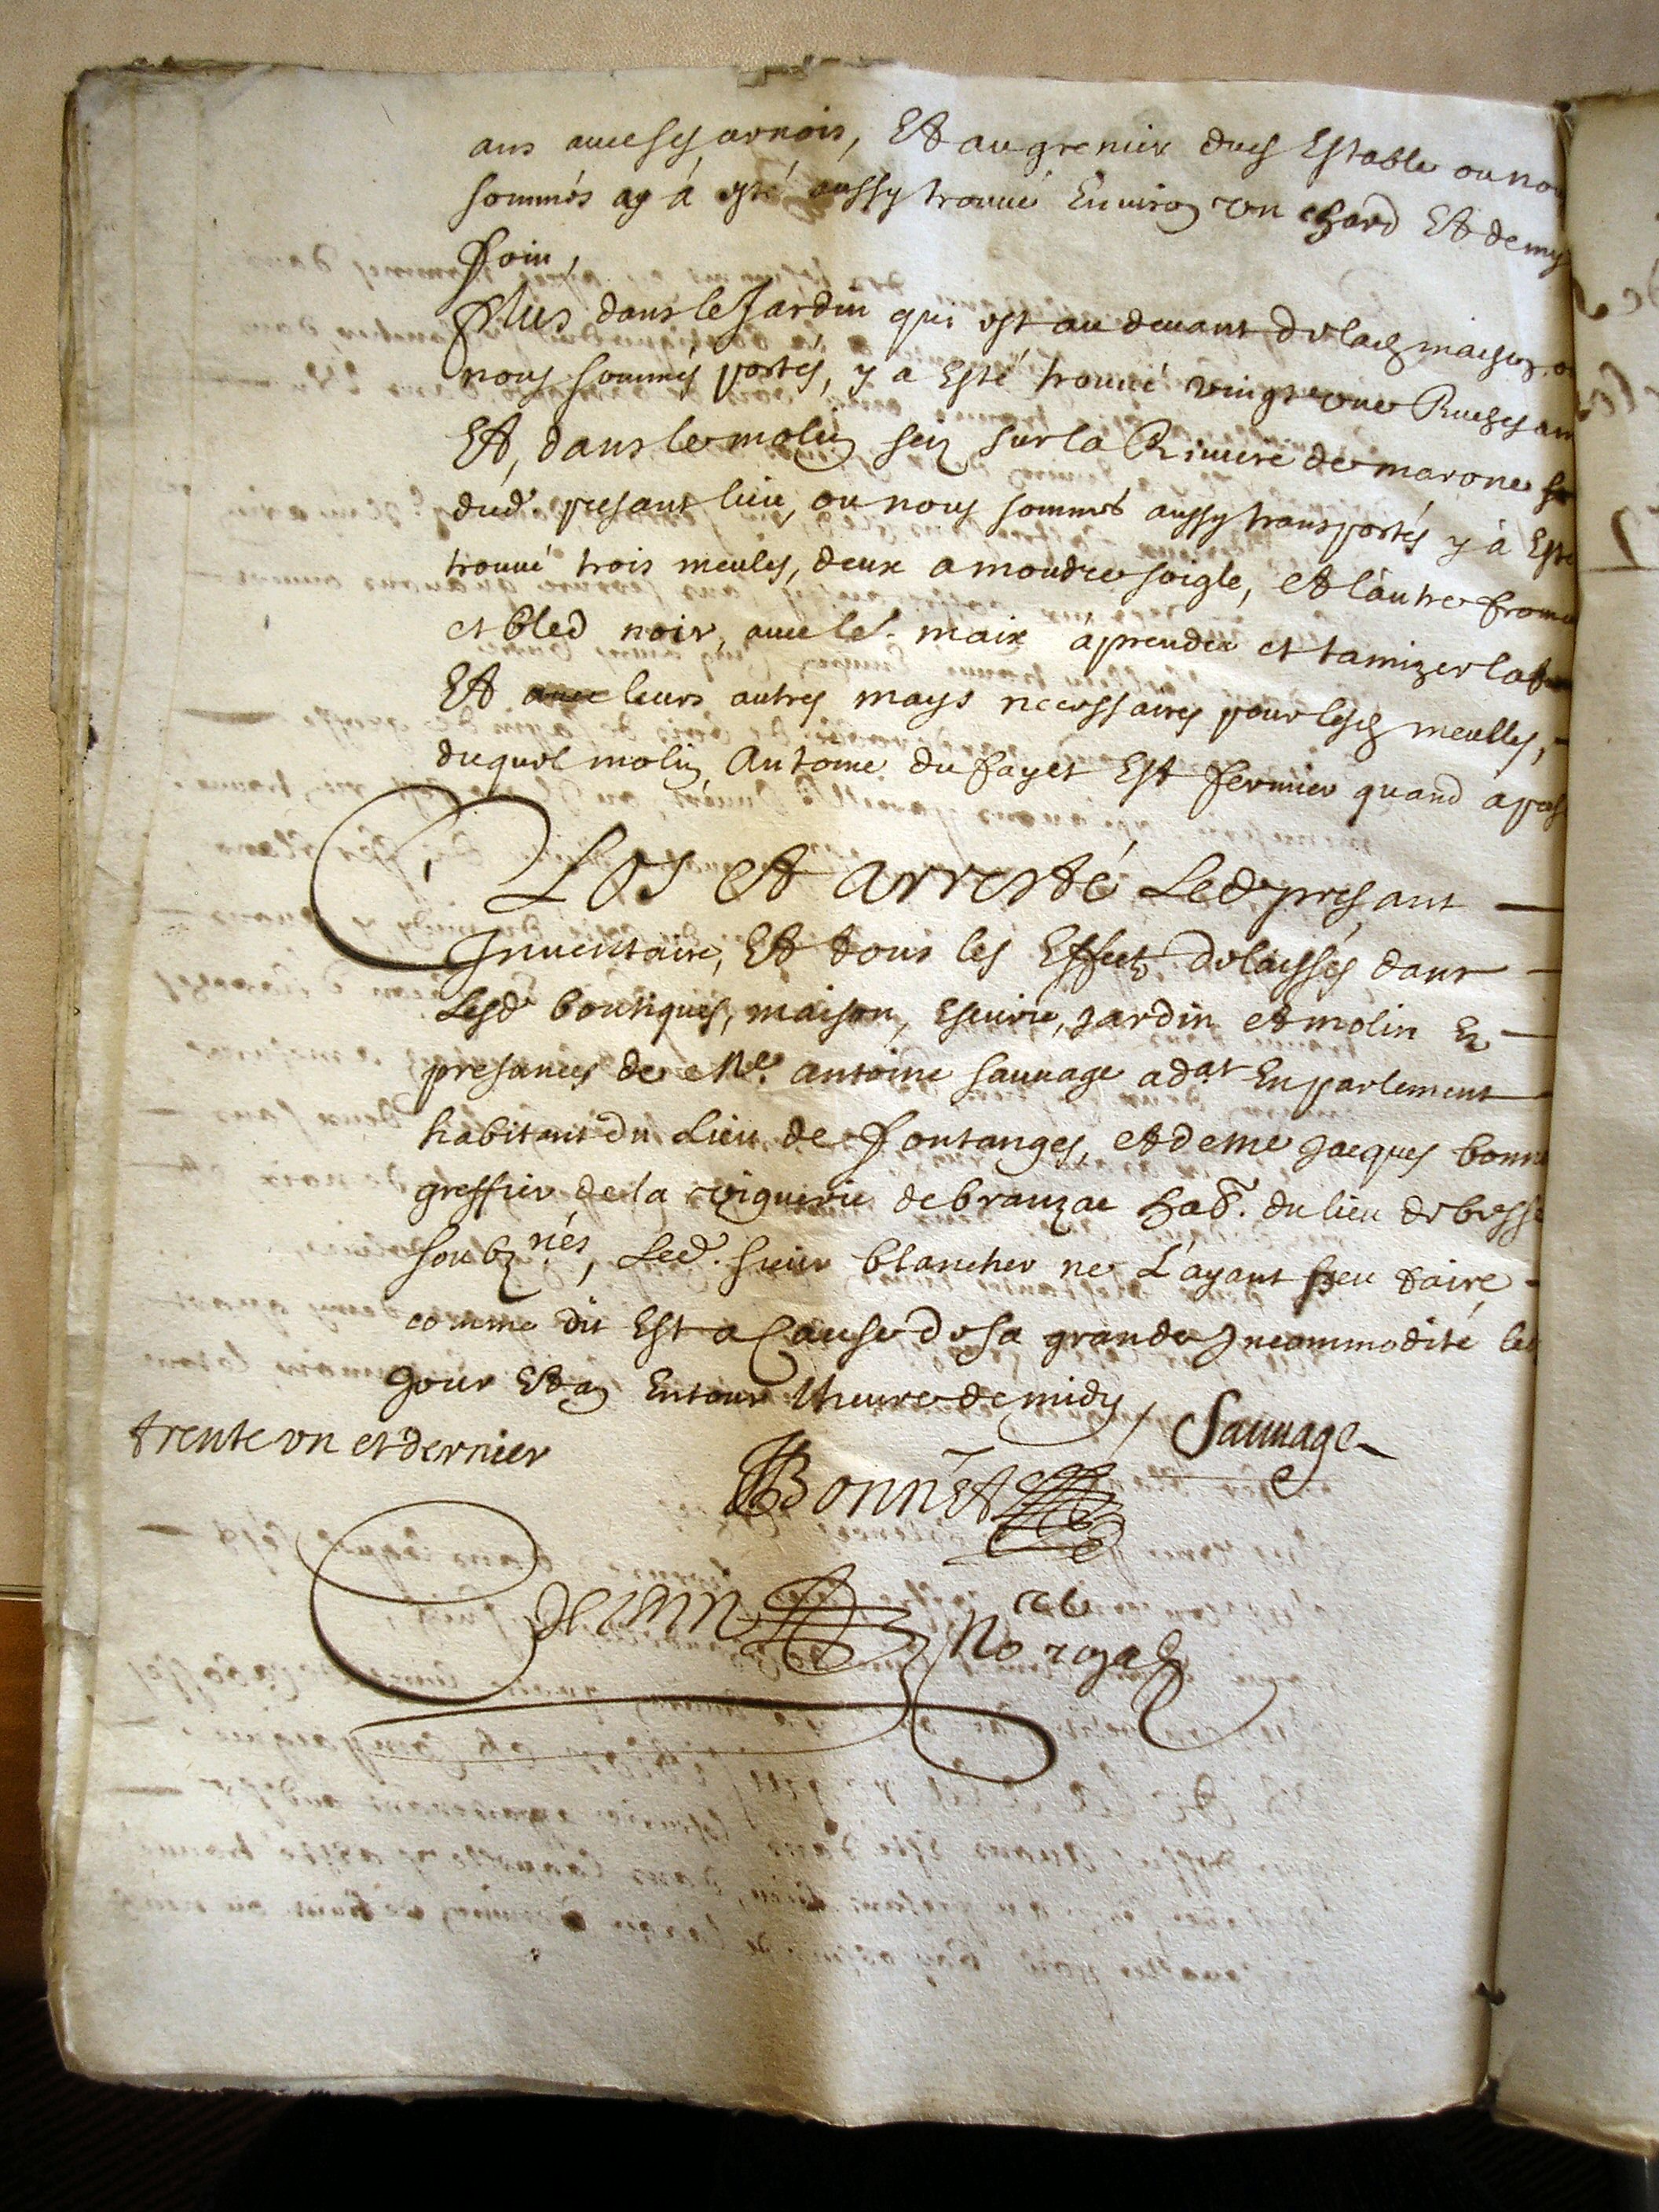 ans avec ses arnois, Et au grenier dud Estable ou nou
sommes ay á esté aussy trouué Enuiron vn chard Et demy
foin,
Plus dans le Jardin qui est au deuant de lad maison, ou
nous sommes portés, y a Esté trouué vingt vne Ruches
Et, dans le molin seiz sur la Riuiere de marone
dud. presant lieu, ou nous sommes aussy transportés y à Esté
trouué trois meules, deux a moudre soigle, et l'autre from
et bled noir, auec le. maix á prendre et tamizer la
Et leurs autres mays necessaires pour lesd meulles,
duquel molin Antoine du fayet Est fermier quand a pres
Clos et arresté Led presant
Inuentaire, Et tous les Effectz delaissés dans
Lesd boutiques, maison, Escurie, Jardin et molin En
presances de Me. antoine sauuage adat En parlement
habitant du Lieu de fontanges, et de me Jacques bonne
greffier de la viguerie de branzac hab. du lieu de besse
soubznés, Led. sieur blancher ne L'ayant peu faire
comme dit Est a Cause de sa grande Incommodité les
Jour Et an Entour Lheure de midy, Sauuage
trente vn et dernier
Bonnet
no royal